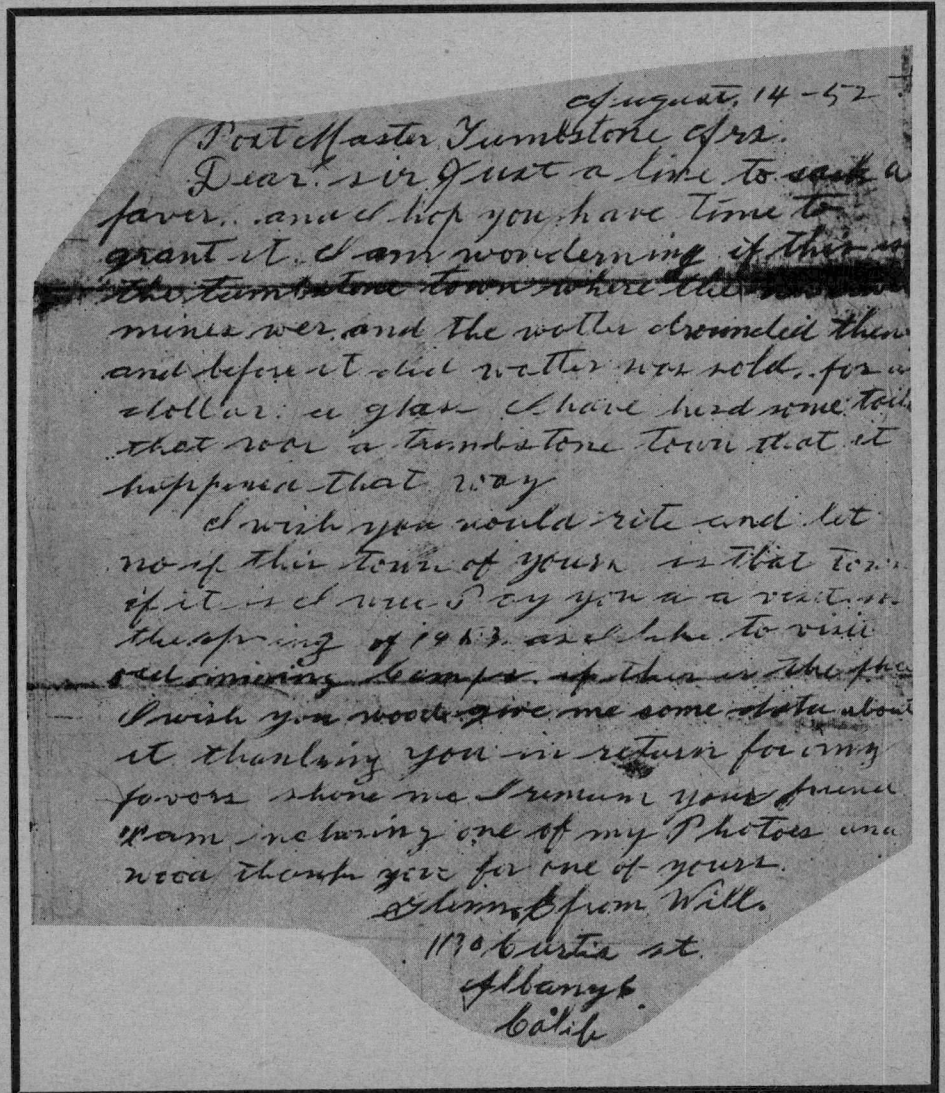 August. 14-52
Post Master Tumbstone Ars.
Dear. sir Just a line to ask a
faver. and I hop you have time to
grant it. I am wonderning if this is
the tumbstone town where the
mines wer. and the watter drounded them
and before it did watter was sold. for a
dollar. a glass I have herd some told
that was a tumbstone town that it
happened that way
I wish you would rite and let
no if this town of yours is that town
if it is I will Pay you a a visit in
the spring of 1953. as I like to visit
old mining Camps. if this is the place
I wish you wood give me some data about
it thanking you in return for any
favors shone me I remain your friend
I am inclosing one of my Photoes and
wood thank you for one of yours.
from Will.
1130 Curtis st.
Albany 6
Calif